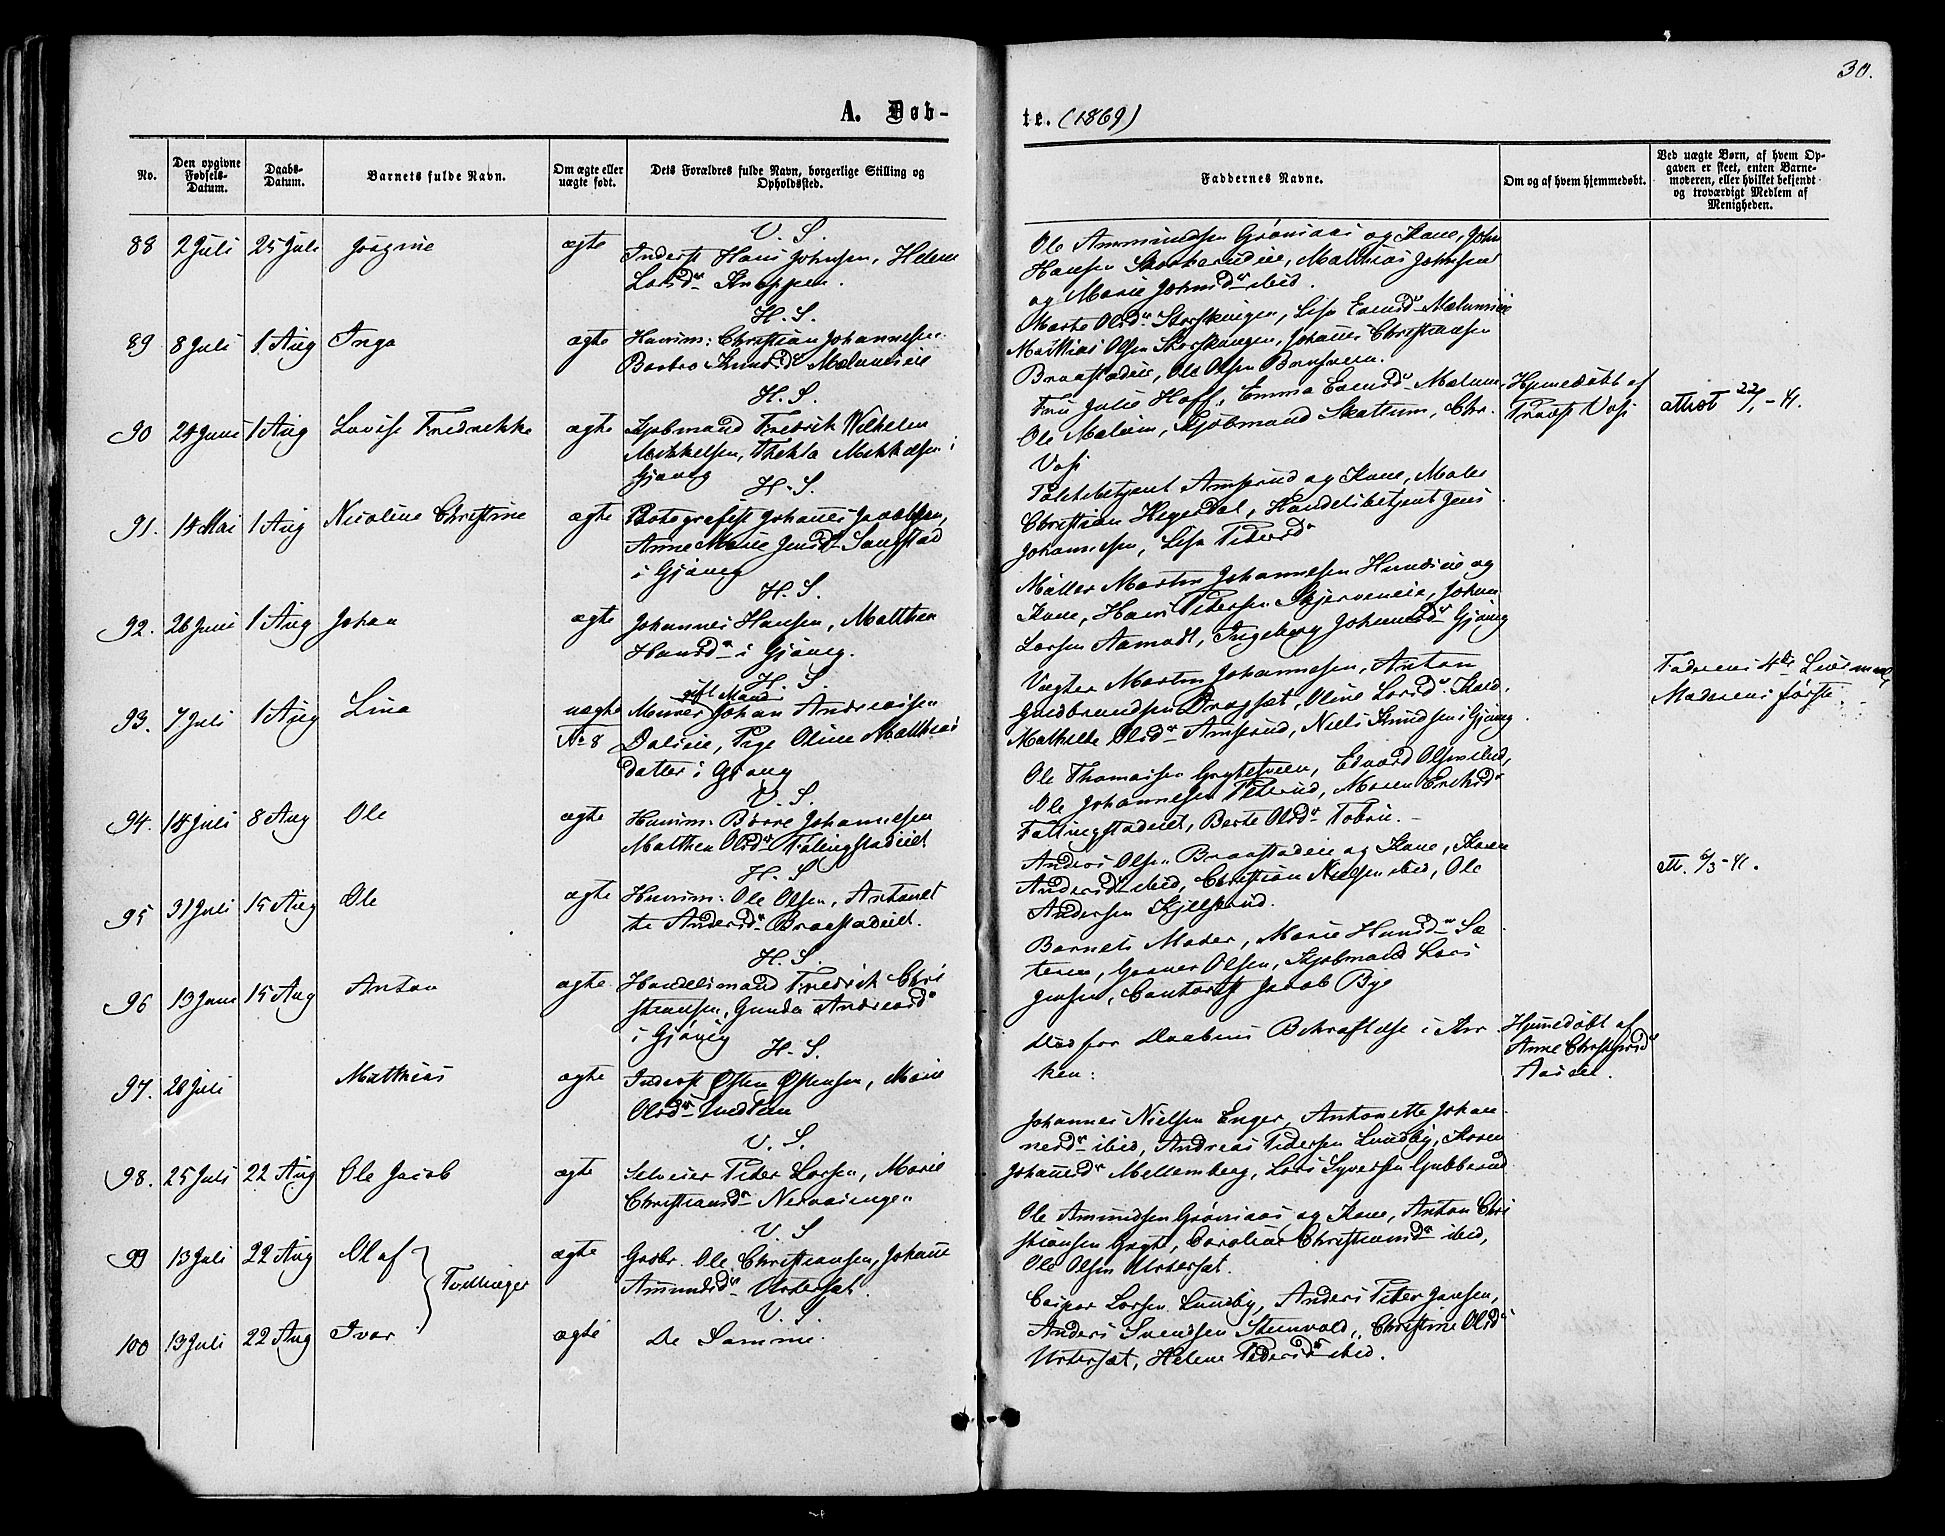 30.
A. Døb-
te. (1869)
No.
Den opgivne Fødsels-Datum.
Daabs-Datum.
Barnets fulde Navn.
Om ægte eller uægte født.
Dets Forældres fulde Navn, borgerlige Stilling og Opholdssted.
Faddernes Navne.
Om og af hvem hjemmedøbt.
Ved uægte Børn, af hvem Op-
gaven er skeet, enten Barne-
moderen, eller hvilket bekjendt
og troværdigt Medlem af
Menigheden.
V. S.
88 2 Juli 25 Juli Jørgine ægte Inderst Hans Johnsen, Helene
Larsdr
Ole Ammundsen Grønaas og Kone, John
Hansen Matthias Johnsen
og Marie Johnsdr ibid.
H. S.
89 8 Juli 1 Aug Inga ægte Huusm: Christian Johannesen
Barbro Knudsdr Mælumseie
Marte Olsdr Lise Evensdr Mælumseie
Matthias Olsen Johannes Christiansen
Braastadeie, Ole Olsen
H. S.
90 24 Juni 1 Aug Lovise Fredrekke ægte Kjøbmand Fredrik Wilhelm
Mikkelsen, Thekla Mikkelsen i
Gjøvig
Fru Julie Hoff, Emma Evensdr Mælum,
Ole Mælum, Kjøbmand Skattum, Chr.
Hjemedøbt af
Provst
attest 22/1-41.
H. S.
91. 14 Mai 1 Aug Nicoline Christine ægte Fotografist Johannes
Anne Marie Jensdr Sangstad
i Gjøvig
Toldbetjent Amserud og Kone, Maler
Christian Hegerdal, Handelsbetjent Jens
Johannesen, Lise Pedersdr
H. S.
92. 26 Juni 1 Aug Johan ægte Johannes Hansen, Matthea
Hansdr i Gjøvig.
Møller Martin Johannesen Hunseie og
Kone, Hans Pedersen Skjerveneie, Johan
Larsen Aamodt, Ingeborg Johannesdr Gjøvig
H. S.
93. 7 Juli 1 Aug Lina uægte gift Mand
Murer Johan Andreassen
No 8 Dalseie, Pige Oline Matthias
datter i Gjøvig
Vægter Martin Johannesen, Anton
Guldbrandsen Dragsæt, Oline Larsdr
Mathilde Olsdr Amserud, Niels Knudsen i Gjøvig
Faderens 4de Leiermaal,
Moderens første.
V. S.
94. 14 Juli 8 Aug Ole ægte Huusm: Børre Johannesen
Matthea Olsdr
Ole Thomassen Edvard Olsen ibid,
Ole Johannesen Maren Eriksdr
Berte Olsdr
H. S.
95 31 Juli 15 Aug Ole ægte Huusm: Ole Olsen, Antonet
te Andersdr Braastadeiet.
Anders Olsen Braastadeie og Kone, Karen
Andersdr ibid, Christian Nielsen ibid, Ole
Andersen Kjellsrud.
att. 6/3-41.
H. S.
96 13 Juni 15 Aug Anton ægte Handelsmand Fredrik Chri
stiansen, Gunda Andreasdr
i Gjøvig
Barnets Moder, Marie Hansdr Sæ
teren, Garver Olsen, Kjøbmand Lars
Jensen, Contorist Jacob Bye
H. S.
97. 20 Juli Matthias ægte Inderst Østen Østensen, Marie
Olsdr
Død før Daabens Bekræftelse i Kir
ken:
Hjemedøbt af
Anne
V. S.
98. 25 Juli 22 Aug Ole Jacob ægte Selveier Peter Larsen, Marie
Christiansdr
Johannes Nielsen Enger, Antonette Johan-
nesdr ibid, Andreas Pedersen Lundby, Karen
Johannesdr Mellemberg, Lars Syversen Gubberud
V. S
99 13 Juli 22 Aug Olaf Tvillinger ægte Gaardbr. Ole Christiansen, Johanne
Amundsdr
Ole Amundsen Grønaas og Kone, Anton Chri
stiansen Caroline Christiansdr ibid,
Ole Olsen
V. S
100 13 Juli 22 Aug Ivar ægte De Samme.
Casper Larsen Lundby, Anders Peter Jansen,
Anders Svendsen Stenvold, Christine Olsdr
Helene Pedersdr ibid.